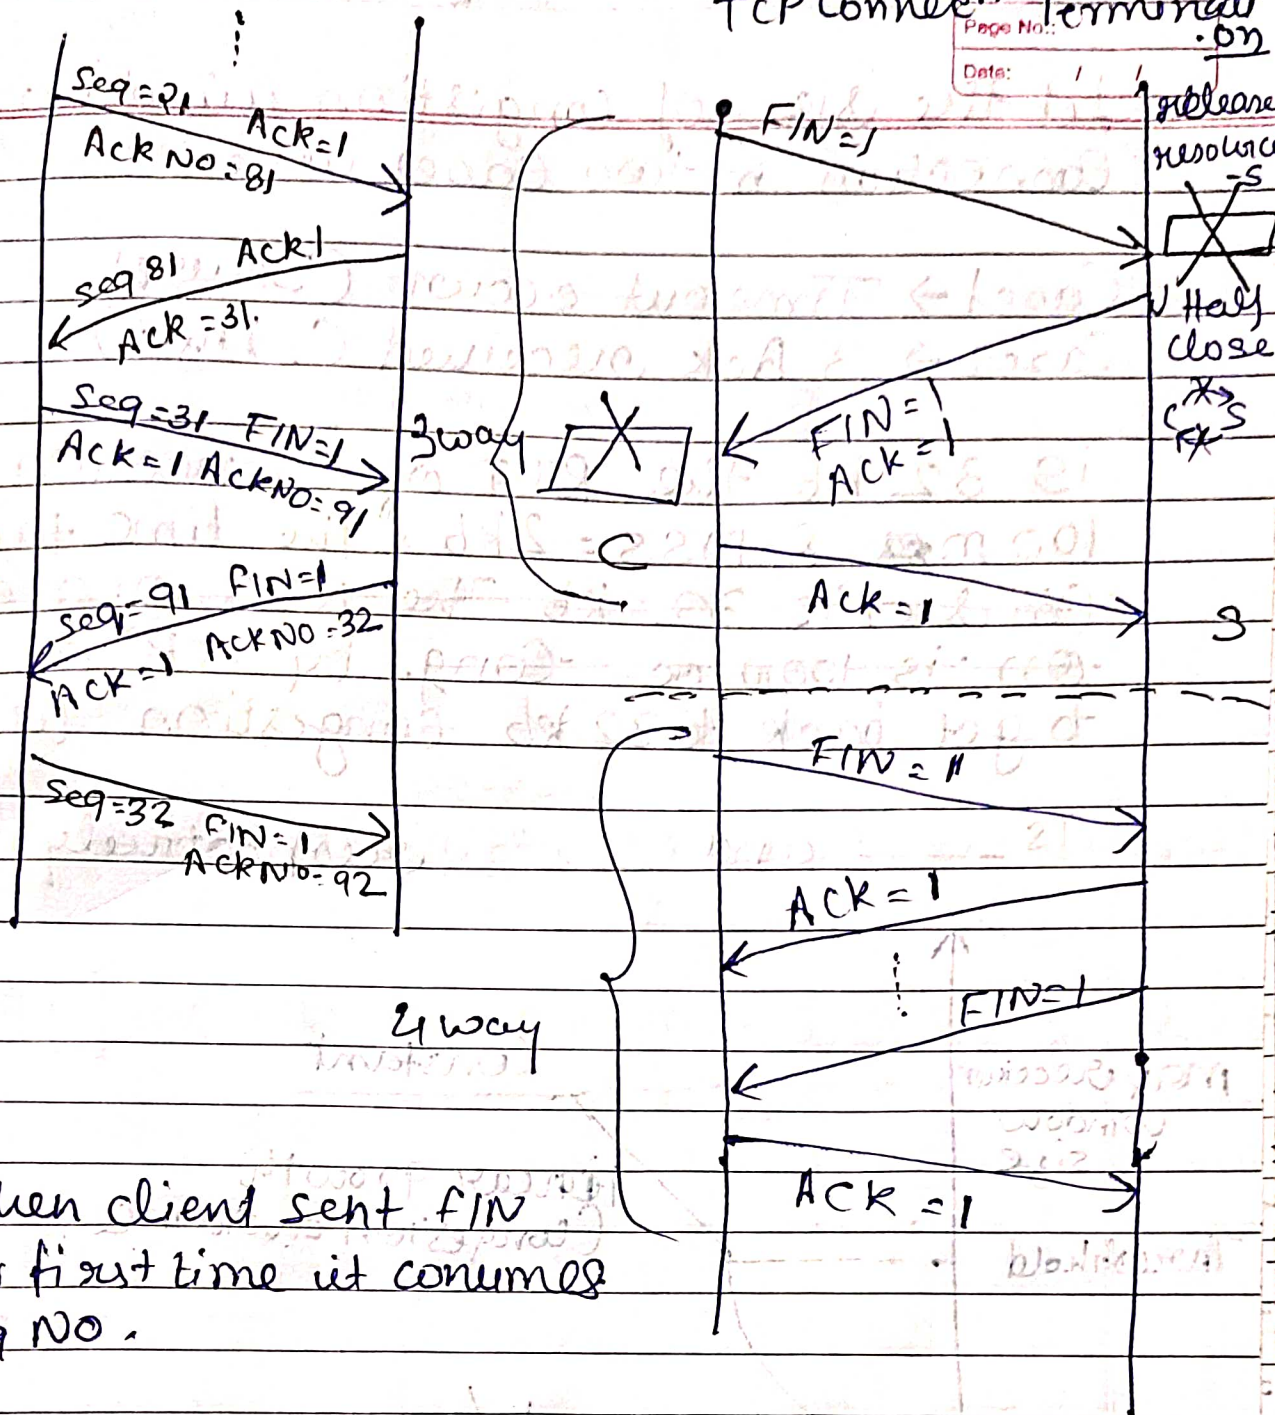 TCP Connec. Terminati
.on
Page No.:
Date: / /
Seq=21
Ack=1
Ack No=81
seq 81 Ack1
Ack=31.
Seq=31 FIN=1
Ack=1 AckNO=91
seq=91 FIN=1
AckNO=32
Ack=1
Seq=32 FIN=1
AckNo=92
3way
FIN=1
release
resource
-s
Half
close
C S
FIN=1
ACK=1
C
Ack=1
S
4way
FIN=1
ACK=1
FIN=1
ACK=1
client sent FIN
first time it conumes
NO.